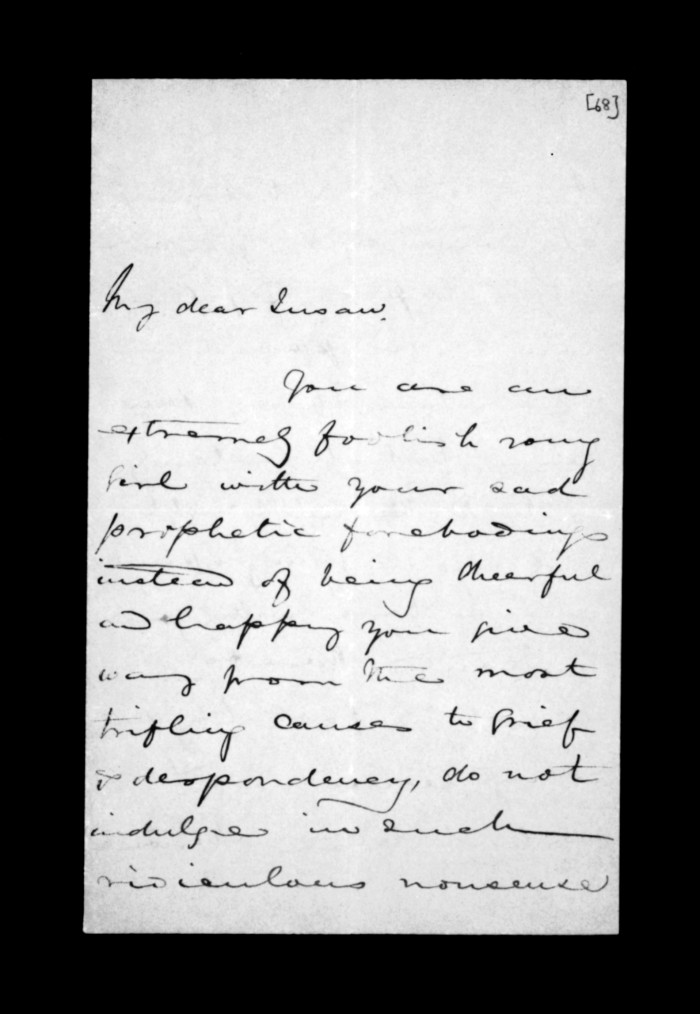 [68]
My dear Susan.
You are an
extremely foolish young
girl with your sad
prophetic forebodings
instead of being cheerful
and happy you give
way from the most
trifling causes to grief
& despondency, do not
indulge in such
ridiculous nonsense